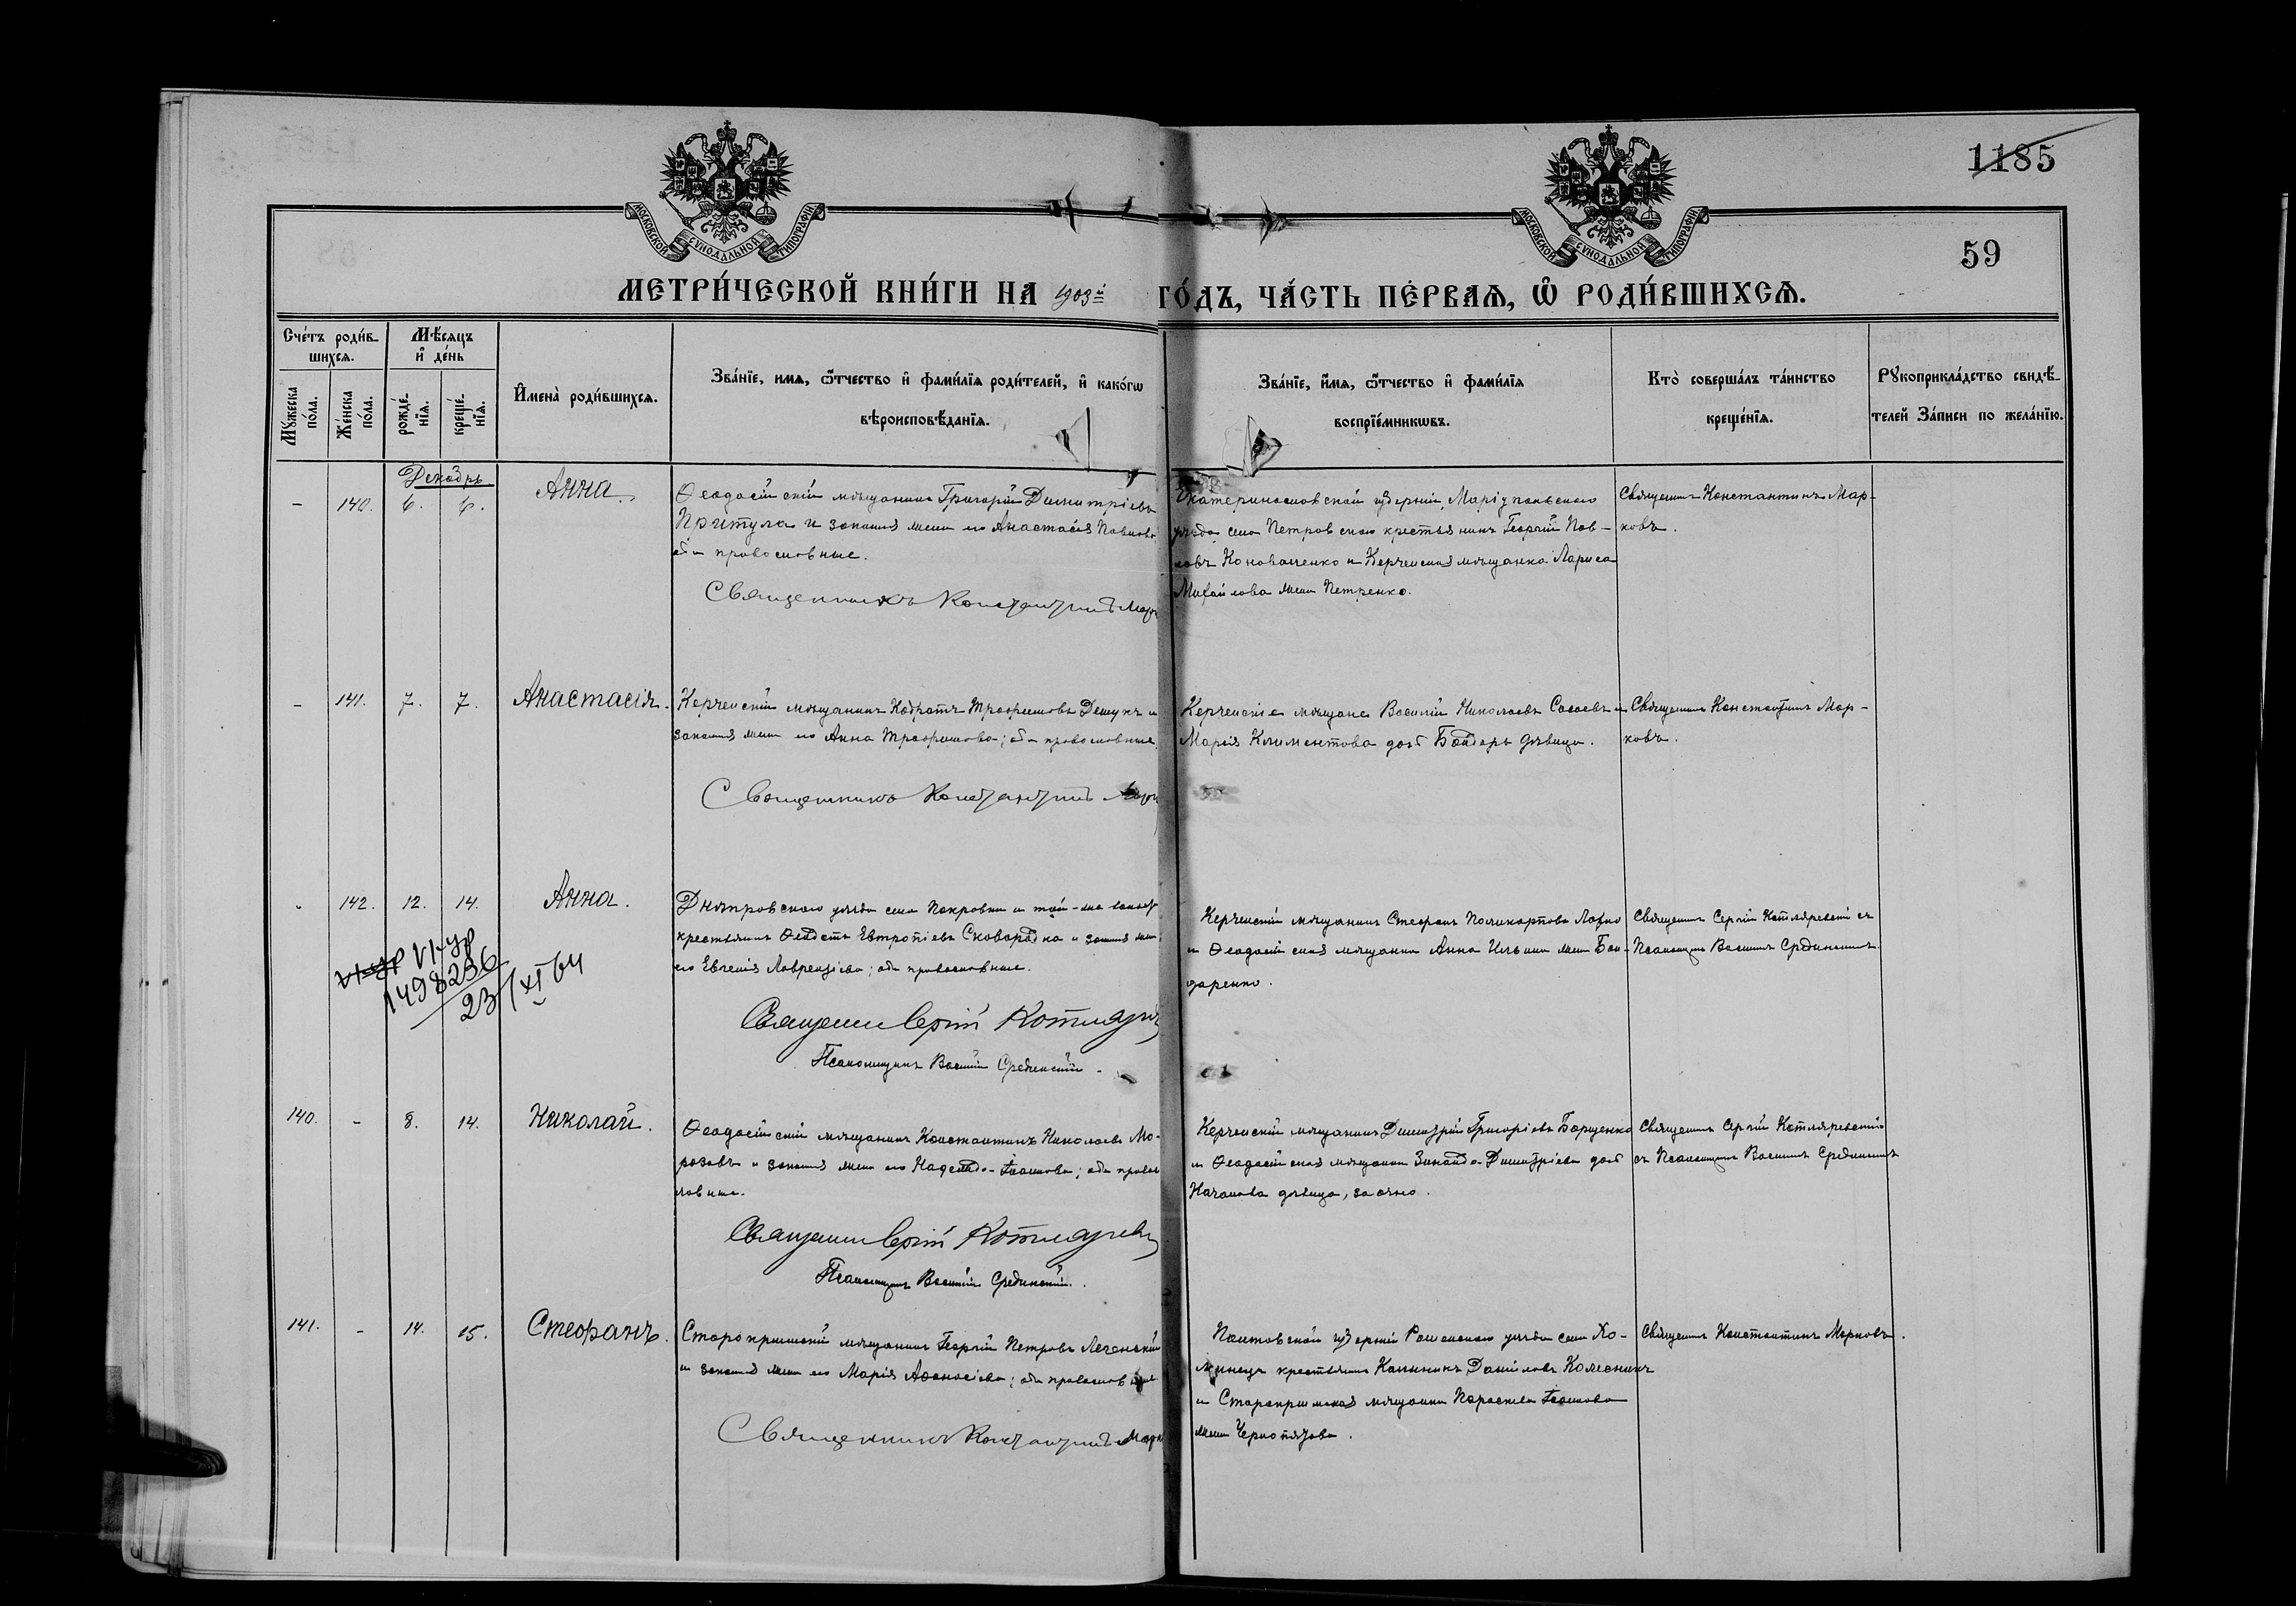 1185
59
МОСКОВСКОЙ СУНОДАЛЬНОЙ ТИПОГРАФІИ
МОСКОВСКОЙ СУНОДАЛЬНОЙ ТИПОГРАФІИ
МЕТРИ́ЧЕСКОЙ КНИ́ГИ НА 1903й ГО́ДЪ, ЧА́СТЬ ПЕ́РВАЯ, Ѿ РОДИ́ВШИХСЯ.
Сче́тъ роди́в-
шихся.
Мѣ́сяцъ
и҆ де́нь
Мꙋ́жеска
по́ла.
Же́нска
по́ла.
рожде́-
нїя.
креще́-
нїя.
И҆мена̀ роди́вшихся.
Зва́нїе, имя, ѻ҆́тчество и҆ фами́лїя роди́телей, и҆ како́гѡ
вѣроисповѣ́данїя.
Зва́нїе, и҆́мя, ѻ҆́тчество и҆ фами́лїя
воспрїе́мникѡвъ.
Кто̀ соверша́лъ та́инство
креще́нїя.
Рꙋкоприкла́дство свидѣ́-
телей За́писи по жела́нїю.
Декабрь
- 140. 6. 6. Анна.
Ѳеодосійскій мѣщанинъ Григорій Димитріевъ
Притула и законная жена его Анастасія Павлова
оба православные.
Священникъ Константинъ
Екатеринославской губерніи, Маріупольскаго
уѣзда села Петровскаго крестьянинъ Георгій Пав-
ловъ Коноваленко и Керченская мѣщанка Лариса
Михайлова жена Петренко.
Священникъ Константинъ Мар-
ковъ.
- 141. 7. 7. Анастасія.
Керченскій мѣщанинъ Кодратъ Трофимовъ Демукъ и
законная жена его Анна Трофимова; оба православные.
Священникъ Константинъ
Керченскіе мѣщане Василій Николаевъ и
Марія Климентова дочь Бондарь дѣвица.
Священникъ Константинъ Мар-
ковъ.
- 142. 12. 14. Анна.
Днѣпровскаго уѣзда села Покровки и той-же
крестьянинъ Ѳеодотъ Евтропіевъ Сковородка и законная жена
его Евгенія Лаврентіева; оба православные.
Священникъ Сергій Котляревскій
Псаломщикъ Василій Срединскій.
Керченскій мѣщанинъ Стефанъ Поликарповъ
и Ѳеодосійская мѣщанка Анна Ильина жена Бон-
даренко.
Священникъ Сергій Котляревскій съ
Псаломщикомъ Василіемъ Срединскимъ.
VI-УР
1498236
23/XI 64
140. - 8. 14. Николай.
Ѳеодосійскій мѣщанинъ Константинъ Николаевъ Мо-
розовъ и законная жена его Надежда Іоаннова; оба правос-
лавные.
Священникъ Сергій Котляревскій
Псаломщикъ Василій Срединскій.
Керченскій мѣщанинъ Димитрій Григорьевъ Борщенко
и Ѳеодосійская мѣщанка Зинаида Димитріева дочь
Качанова дѣвица, заочно.
Священникъ Сергій Котляревскій
съ Псаломщикомъ Василіемъ Срединскимъ
141. - 14. 15. Стефанъ.
Старокрымскій мѣщанинъ Георгій Петровъ
и законная жена его Марія Аѳанасіева; оба православные
Священникъ Константинъ
Полтавской губерніи Роменскаго уѣзда села
крестьянинъ Каллиникъ Даніиловъ Колесникъ
и Старокрымская мѣщанка Параскева Іоаннова
жена
Священникъ Константинъ Марковъ.